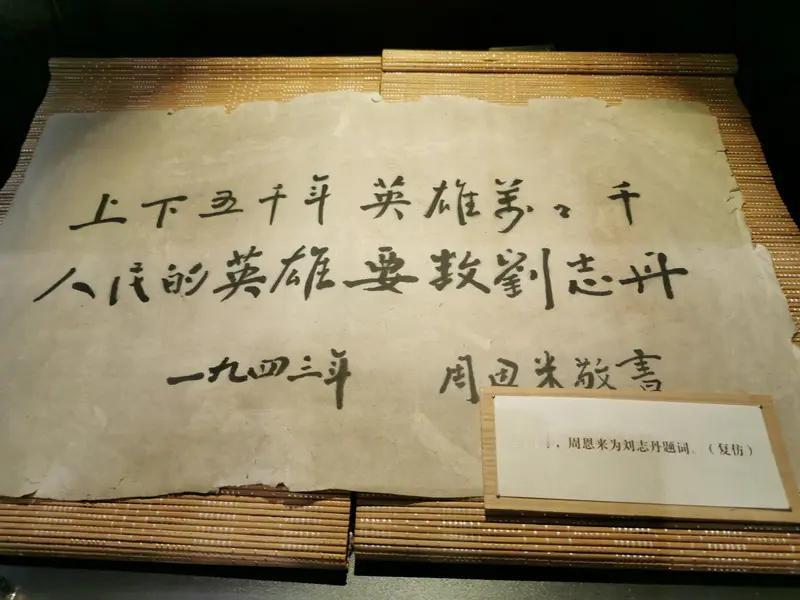 上下五千年 英雄萬々千
人民的英雄要数劉志丹
一九四三年 周恩来敬書
，周恩来为刘志丹题词。（复仿）